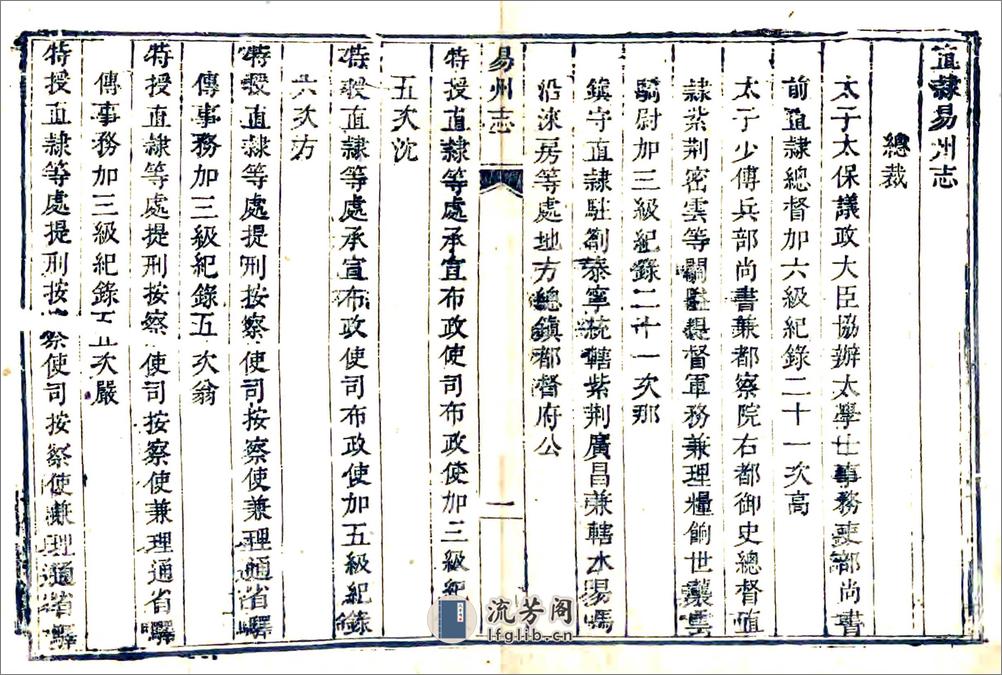 直隸易州志
總裁
太子太保議政大臣協辦大學士事務吏部尚書
前直隸總督加六級紀錄二十一次高
太子少傅兵部尚書兼都察院右都御史總督直
隸紫荆密雲等關隘提督軍務兼理糧餉世襲雲
騎尉加三級紀錄二十一次那
鎮守直隸駐劄泰寧統轄紫荆廣昌兼轄水陽馬
沿淶房等處地方總鎮都督府公
易州志
一
特授直隸等處承宣布政使司布政使加三級紀
五次沈
特授直隸等處承宣布政使司布政使加五級紀錄
六次方
特授直隸等處提刑按察使司按察使兼理通省驛
傳事務加三級紀錄五次翁
特授直隸等處提刑按察使司按察使兼理通省驛
傳事務加三級紀錄五次嚴
特授直隸等處提刑按察使司按察使兼理通省驛
流芳阁
lfglib.cn